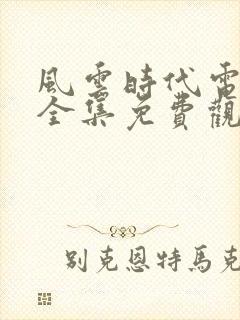 風雲時代電
全集免費觀
別克恩特馬克